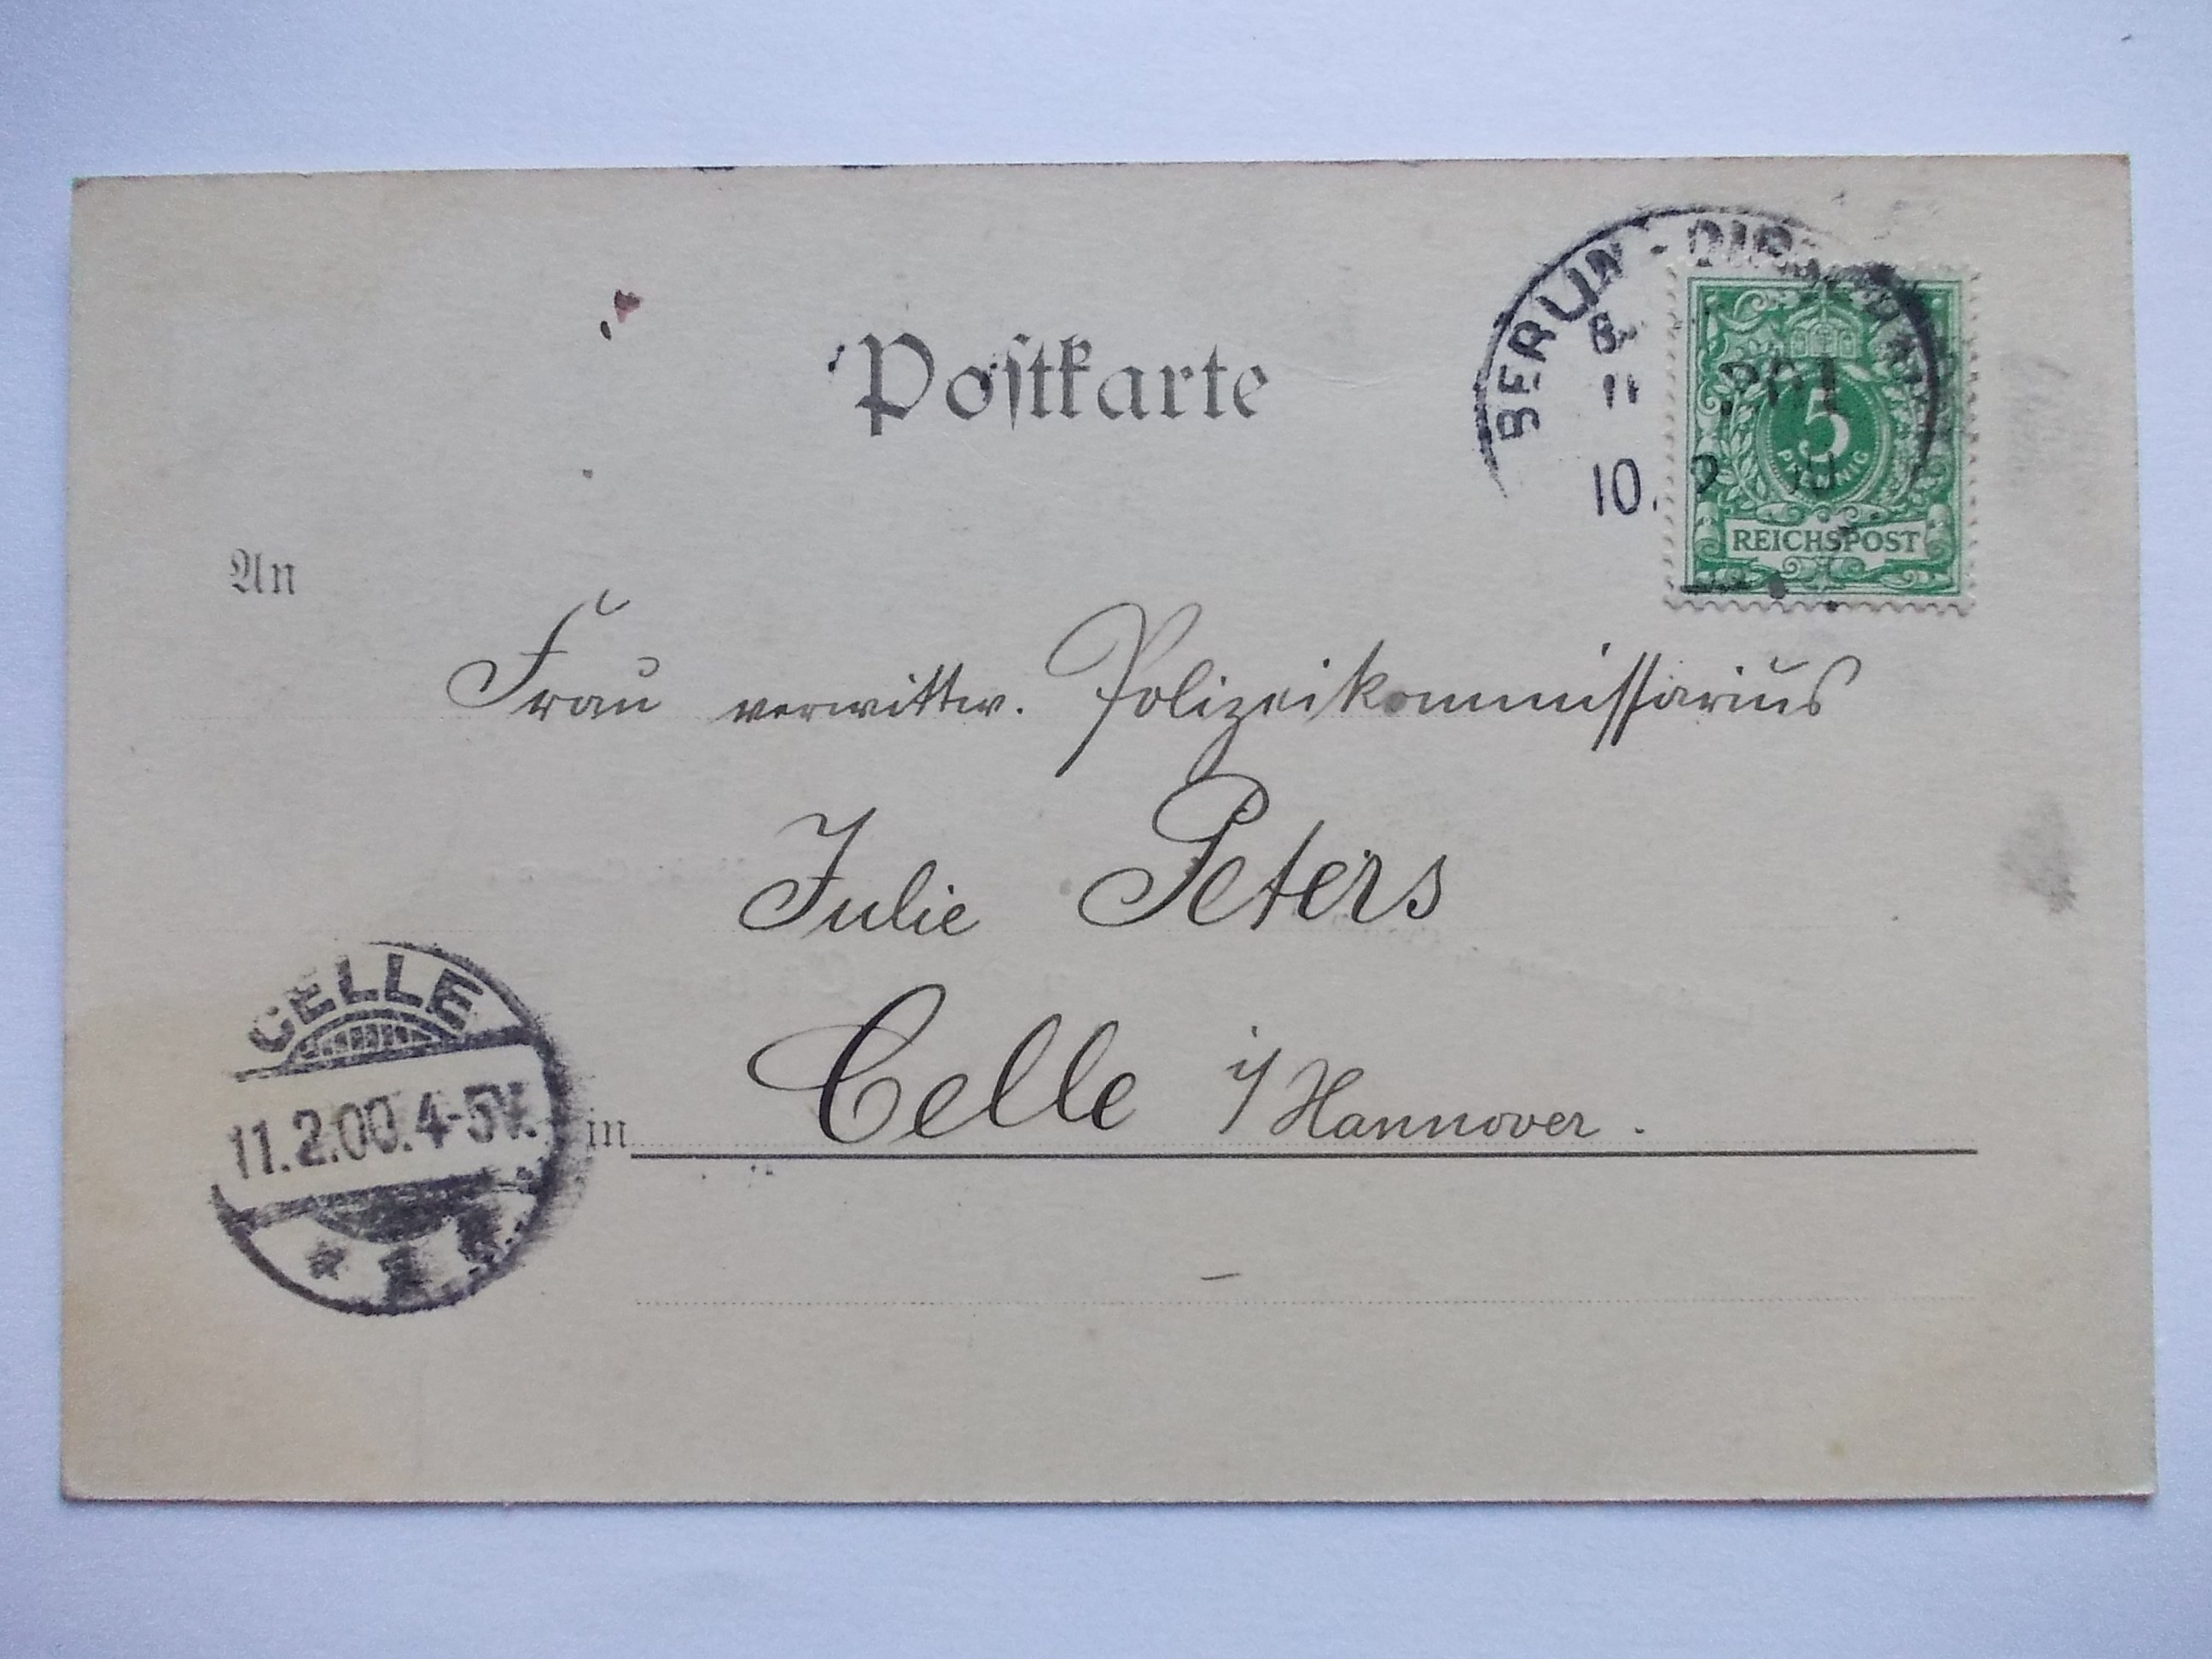 Postkarte
BERLIN -
10.
5
PFENNIG
REICHSPOST
An
Frau verwittw. Polizeikommissarius
Julie Peters
in Celle i/Hannover.
CELLE
11.2.00.4-5V.